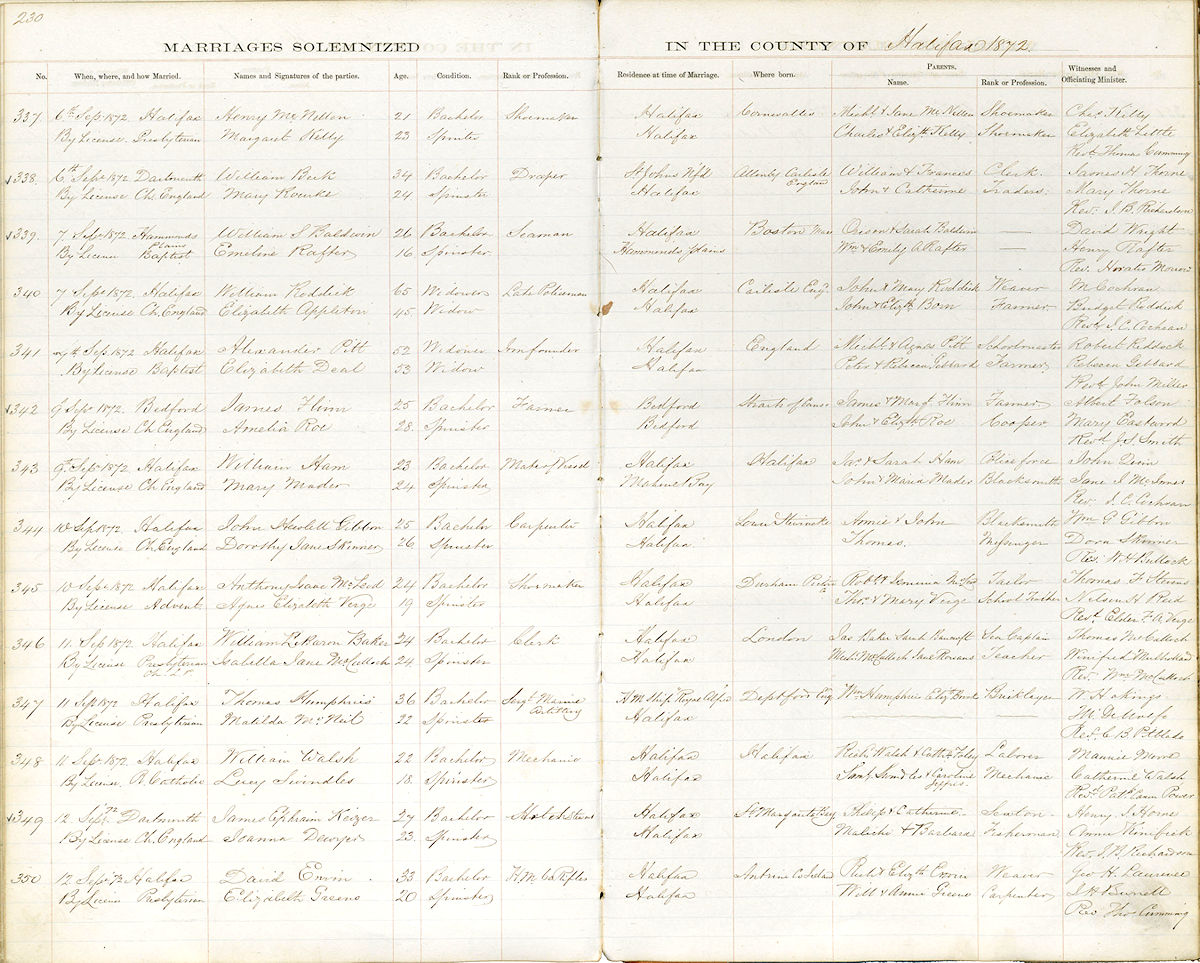 230
MARRIAGES SOLEMNIZED IN THE COUNTY OF Halifax 1872
No. When, where, and how Married. Names and Signatures of the parties. Age. Condition. Rank or Profession. Residence at time of Marriage. Where born. PARENTS. Name. Rank or Profession. Witnesses and Officiating Minister.
337 6th Sep 1872 Halifax Henry Mc Nellon 21 Bachelor Shoemaker Halifax Cornwallis Michl & Jane Mc Nellon Shoemaker Chas Kelly
By License Presbyterian Margaret Kelly 23 Spinster Halifax Charles & Elizth Kelly Shoemaker Elizabeth Little
Revd Thomas Cumming
338 6th Sept 1872 Dartmouth William Beck 34 Bachelor Draper St Johns Nfld Allenby Carlisle England William & Frances Clerk James H Thorne
By License Ch. England Mary Rourke 24 Spinster Halifax John & Catherine Traders Mary Thorne
Rev. J. B. Richardson
339 7 Sept 1872 Hammonds Plains William S Baldwin 26 Bachelor Seaman Halifax Boston Mass & Sarah Baldwin — David Wright
By License Baptist Emeline Rafter 16 Spinster Hammonds plains Wm & Emily A Rafter — Henry Rafter
Rev. Horatio
340 7 Sept 1872 Halifax William Roddick 65 Widower Late Policeman Halifax Carlisle Eng. John & Mary Roddick Weaver M Cochran
By License Ch. England Elizabeth Appleton 45 Widow Halifax John & Elizth Born Farmer Bridget Roddick
Revd J. C. Cochran
341 Sep 1872 Halifax Alexander Pitt 52 Widower Ironfounder Halifax England Michl & Agnes Pitt Schoolmaster Robert Riddock
By License Baptist Elizabeth Deal 53 Widow Halifax Peter & Rebecca Gebbard Farmer Rebecca Gebbard
Revd John Miller
342 9 Sept 1872 Bedford James Flinn 25 Bachelor Farmer Bedford Straits of Canso James & Margt Flinn Farmer Albert Folson
By License Ch England Amelia Roe 28 Spinster Bedford John & Elizth Roe Cooper Mary Eastwood
Revd J. S. Smith
343 9 Sept 1872 Halifax William Ham 23 Bachelor Mate of Vessel Halifax Halifax Jas & Sarah Ham Police force John
By License Ch. England Mary Mader 24 Spinster Mahone Bay John & Maria Mader Blacksmith Jane J Mc Innes
Rev. J. C. Cochran
344 10 Sep 1872 Halifax John Gibbon 25 Bachelor Carpenter Halifax Lower Stewiacke & John Blacksmith Wm G Gibbon
By License Ch. England Dorothy Jane Skinner 26 Spinster Halifax Thomas. Messenger Dora Skinner
Rev. W. H. Bullock
345 10 Sept 1872 Halifax Anthony Isaac McLeod 24 Bachelor Shoemaker Halifax Durham Pictou Robt & Jemima McLeod Tailor Thomas F Stevens
By License Advent. Agnes Elizabeth Verge 19 Spinster Halifax Thos & Mary Verge School Teacher Nelson H Reid
Revd Elder F. A. Verge
346 11 Sep 1872 Halifax William Baker 24 Bachelor Clerk Halifax London Jas Baker Sarah Bancroft Sea Captain Thomas McCulloch
By License Presbyterian Isabella Jane McCulloch 24 Spinster Halifax McCulloch Jane Teacher Winifred
Rev. Wm McCulloch
347 11 Sept 1872 Halifax Thomas Humphries 36 Bachelor Sergt Marine Artillery H M Ship Royal Alfred Deptford Eng Wm Humphries Elizth Brick layer W Hokings
By License Presbyterian Matilda Mc Neil 22 Spinster Halifax — — DeWolfe
Rev. C B Pitblado
348 11 Sept 1872 Halifax William Walsh 22 Bachelor Mechanic Halifax Halifax Richd Walsh & Cathe Foley Laborer
By License R. Catholic Lucy Swindles 18 Spinster Halifax Saml Swindles & Caroline Mechanic Catherine Walsh
Revd Power
349 12 Sept 72 Dartmouth James Ephraim Keizer 27 Bachelor Halifax St Margarets Bay Philip & Catherine Sexton Henry J Horne
By License Ch. England Joanna 23 Spinster Halifax Malichi & Barbara Fisherman Annie
Rev. J. B. Richardson
350 12 Sept 72 Halifax David Ervin 33 Bachelor H. M. 60 Rifles Halifax Antrim Co Ireland & Elizth Ervin Weaver Geo H. Laurence
By License Presbyterian Elizabeth Greeno 20 Spinster Halifax Will & Annie Greeno Carpenter J H Burrell
Rev Thos Cumming